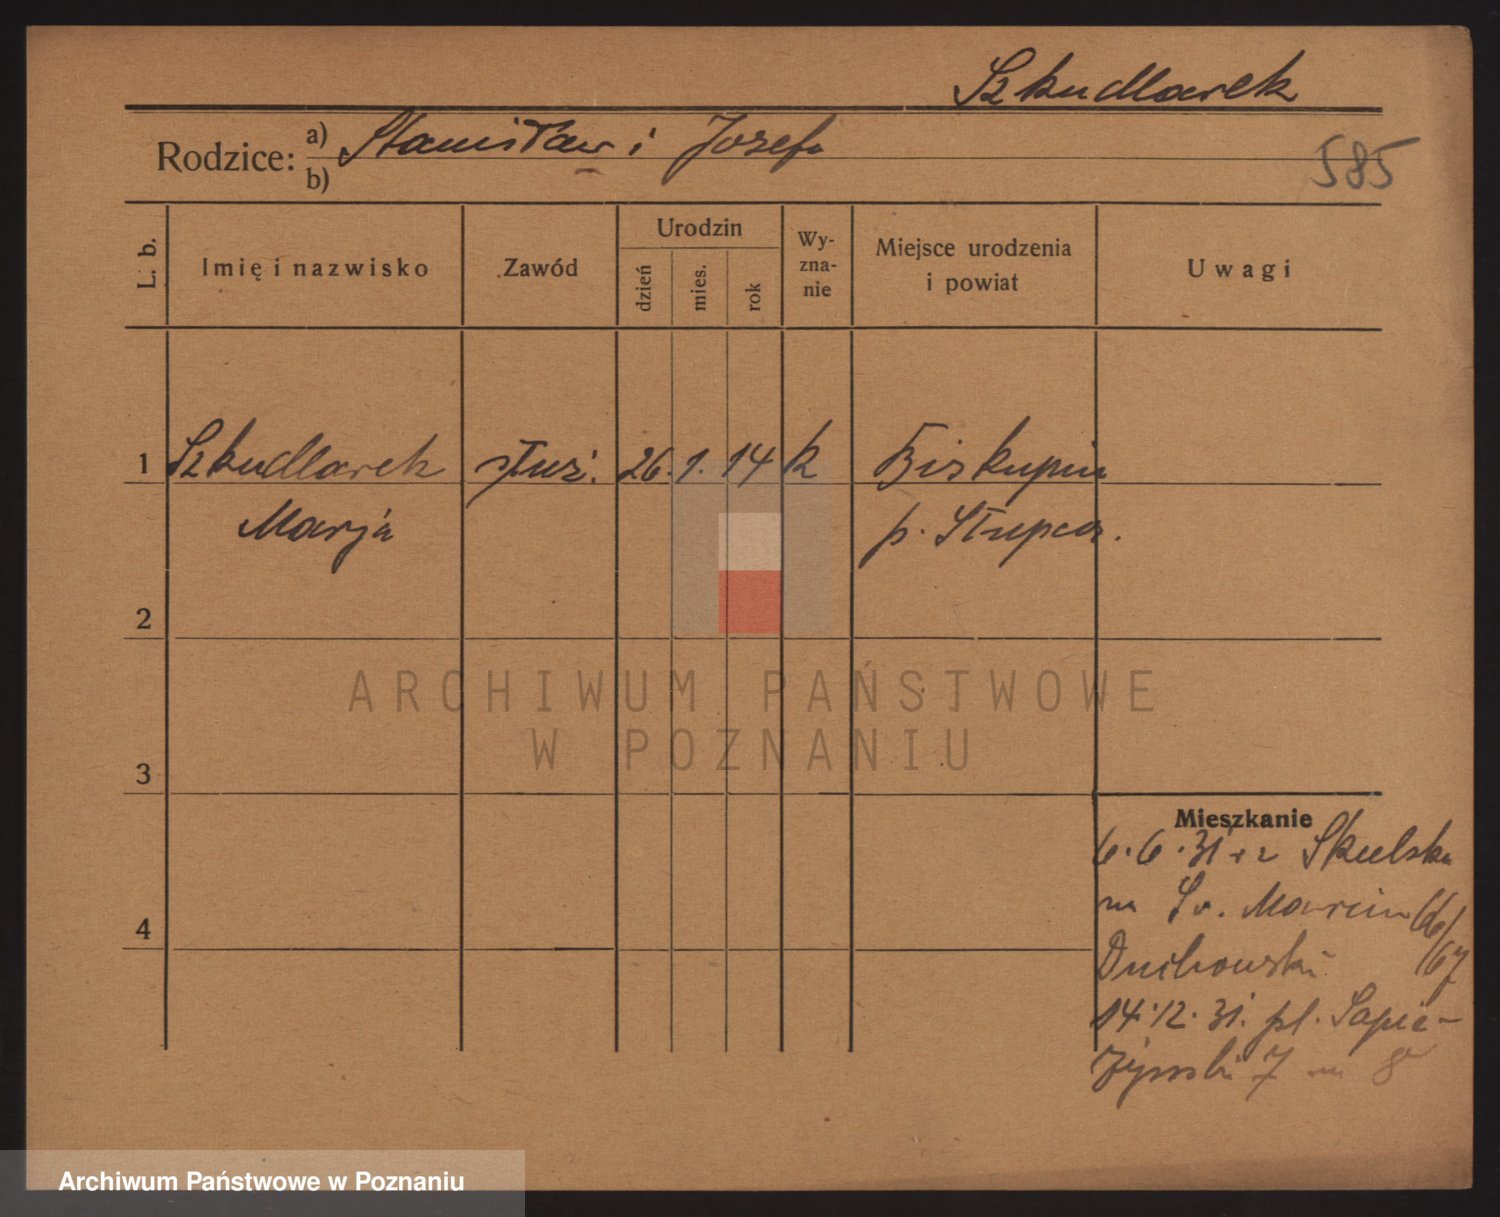 Szkudlarek
Rodzice: a) Stanisław i Józefa
b)
585
L. b.
Imię i nazwisko
Zawód
Urodzin
dzień
mies.
rok
Wy-
zna-
nie
Miejsce urodzenia
i powiat
Uwagi
1 Szkudlarek służ. 26. 1. 14 k Biskupin
Marja p. Słupca.
2
3
4
ARCHIWUM PAŃSTWOWE
W POZNANIU
Mieszkanie
6.6.31 z Skulska
na Św. Marcin 66/
67
Duchowski
14.12.31. pl. Sapie-
żyński 7 m 8
Archiwum Państwowe w Poznaniu